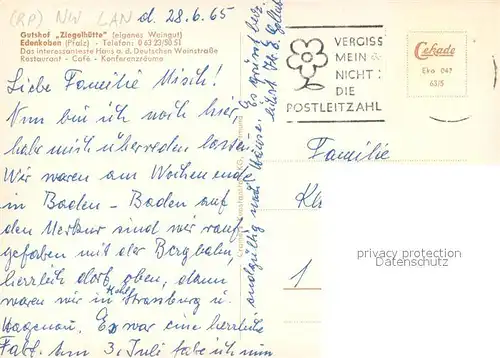 (RP) NW LAN d. 28.6.65
Gutshof „Ziegelhütte" (eigenes Weingut)
Edenkoben (Pfalz) - Telefon: 0 63 23/50 51
Das interessante Haus a. d. Deutschen Weinstraße
Restaurant - Café - Konferenzräume
Liebe Familie Misch!
Nun bin ich noch hier,
habe mich überreden lassen.
Wir waren am Wochenende
in Baden-Baden auf
den Merkur sind wir rauf
gefahren mit der Bergbahn,
herrlich dort oben, dann
waren wir in Kehl Strassburg u.
Hagenau. Es war eine herrliche
Fahrt. Am 3. Juli fahre ich nun
endgültig nach Hause. Es grüsst herz-
VERGISS
MEIN
NICHT:
DIE
POSTLEITZAHL
Cekade
Eko 049
63/5
Familie
Kl
privacy protection
Datenschutz